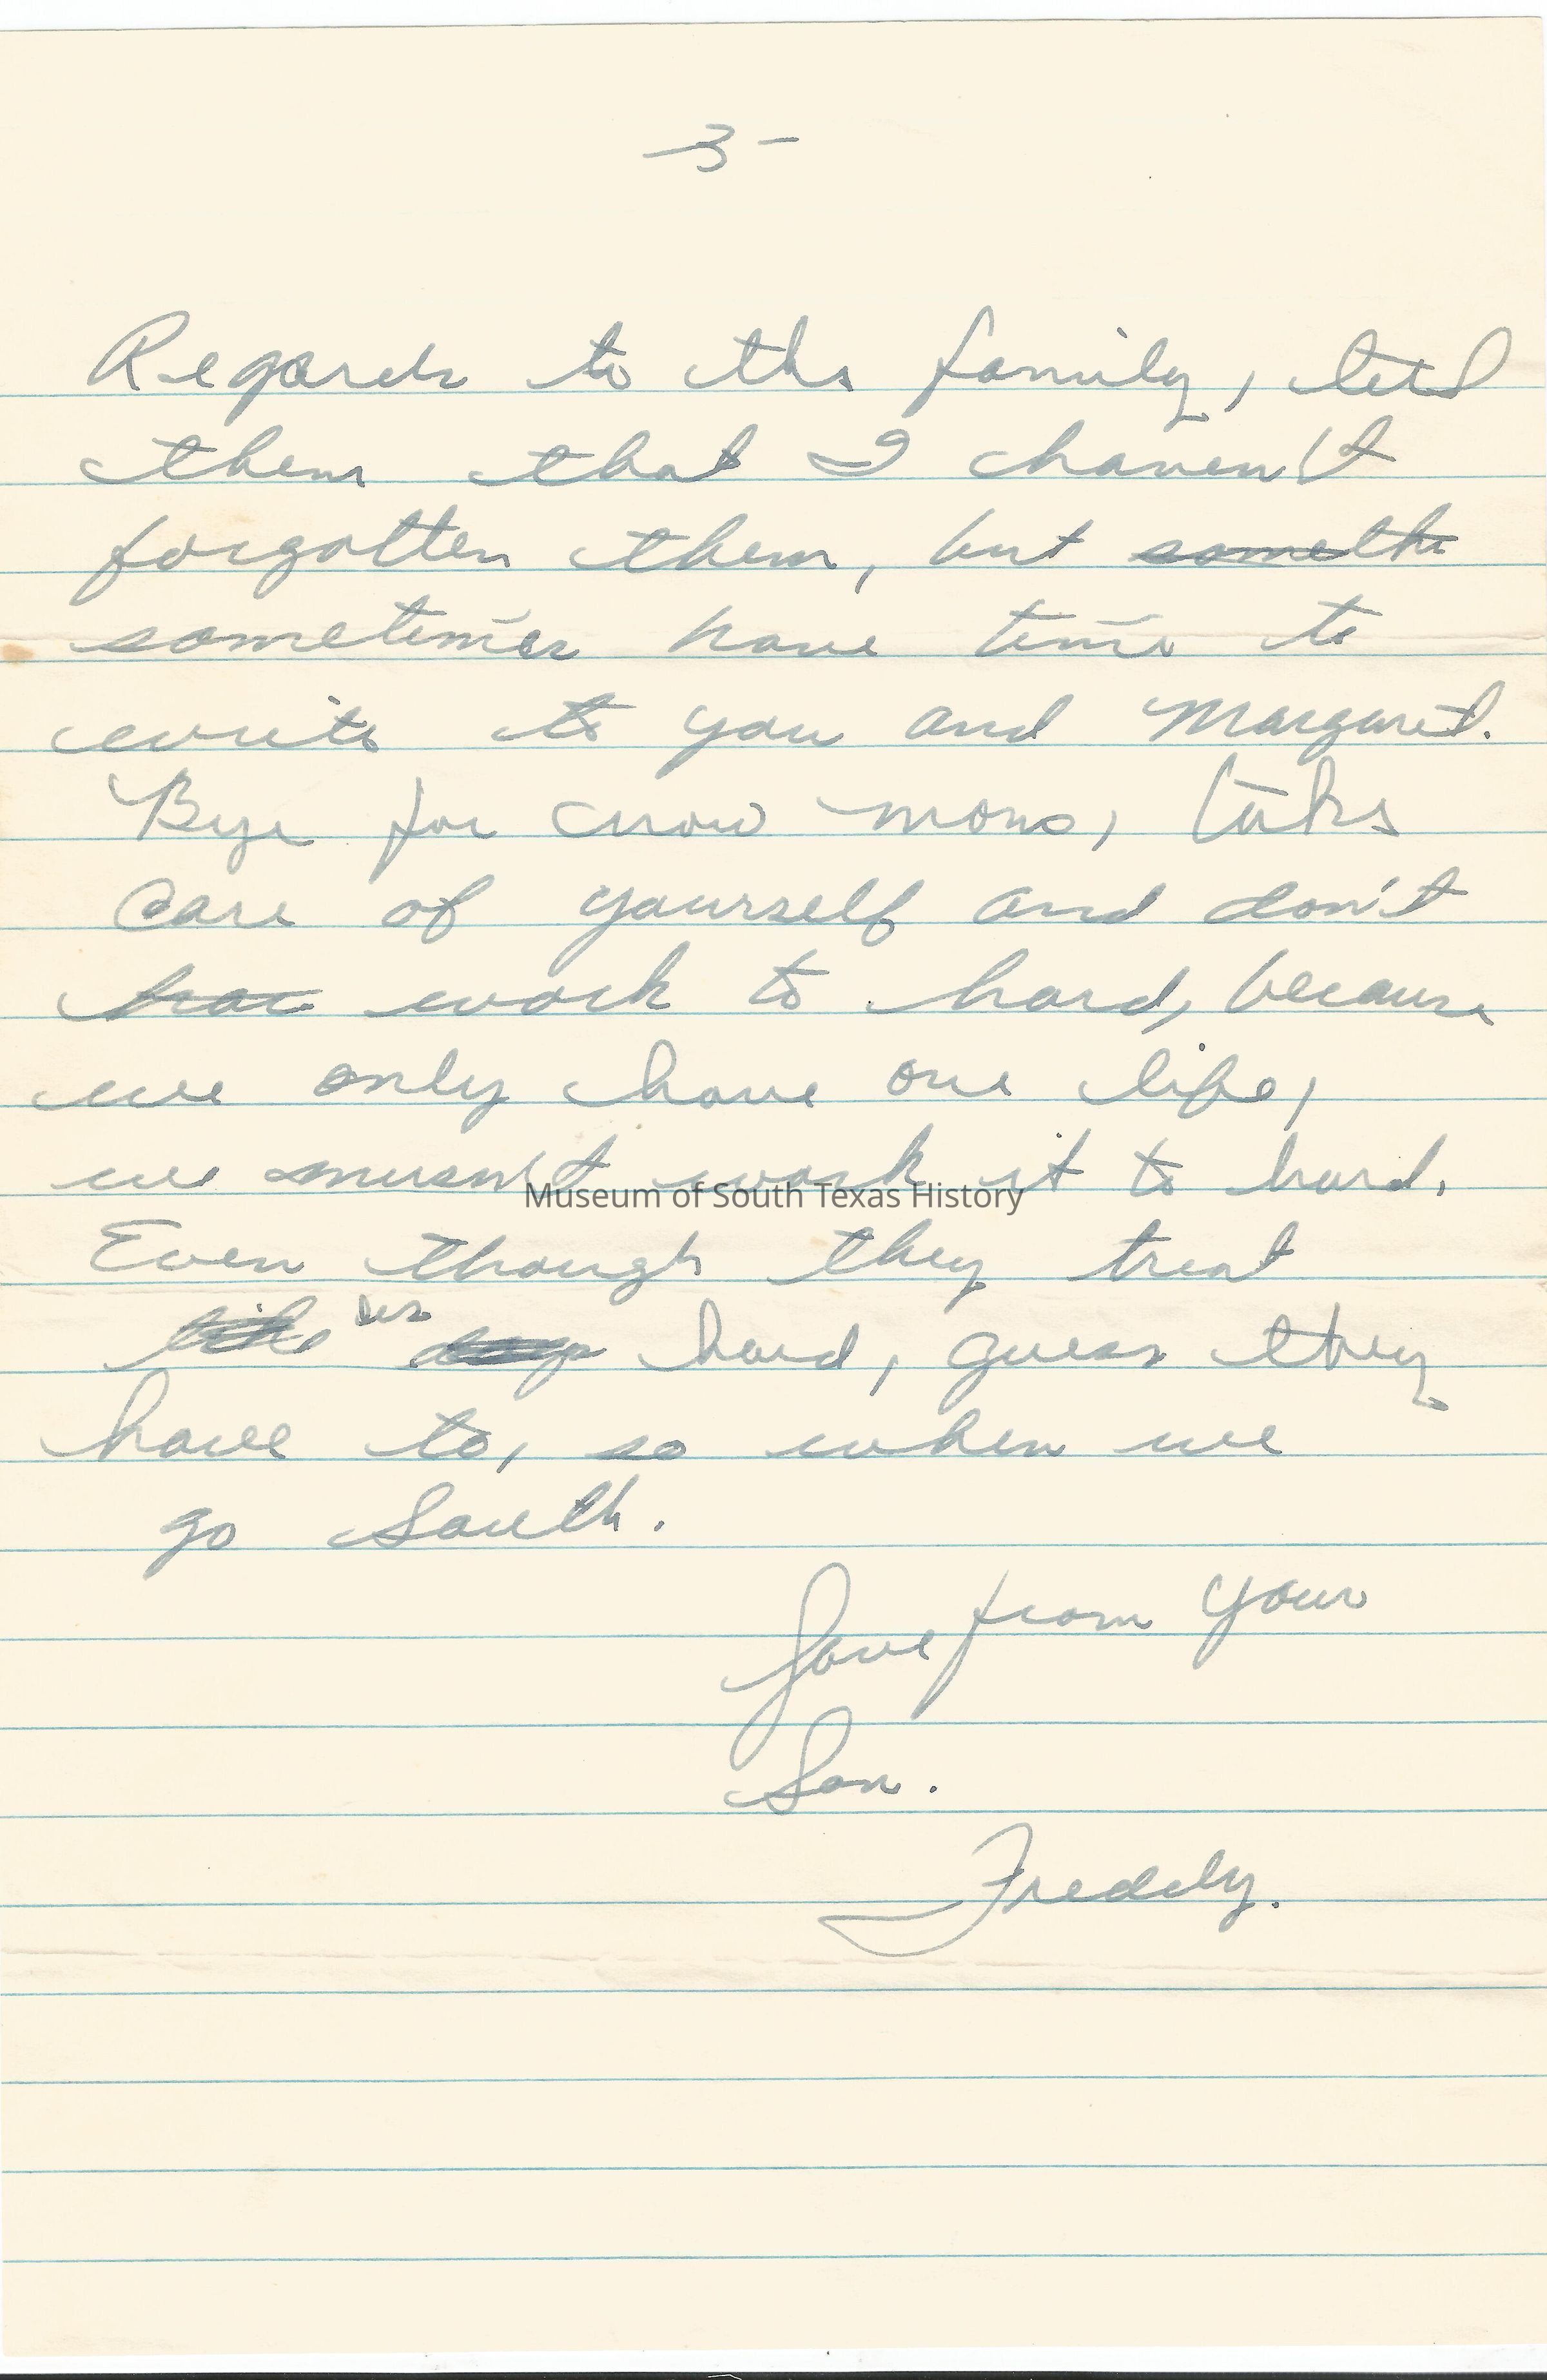 -3-
Regards to the family, tell
them that I haven't
forgotten them, but somethe
sometimes have time to
write to you and Margaret.
Bye for now moms, take
care of yourself and don't
work to hard, because
we only have one life,
we musn't work it to hard.
Museum of South Texas History
Even though they treat
like us dogs hard, guess they
have to, so when we
go South.
Love from your
Son.
Freddy.